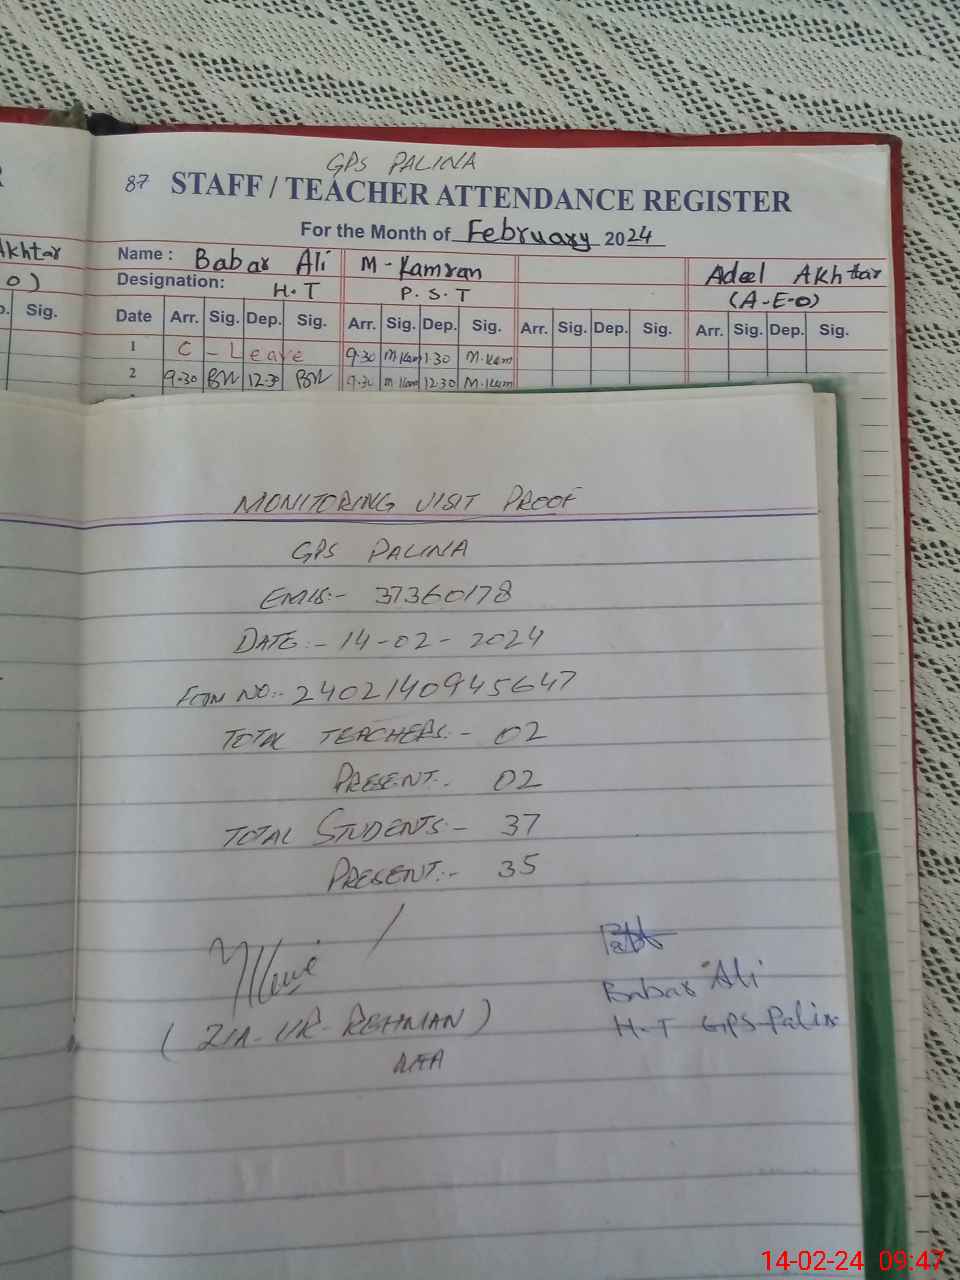 GPS PALINA
87 STAFF / TEACHER ATTENDANCE REGISTER
For the Month of February 2024
Akhtar
Name : Babar Ali M-Kamran Adeel Akhtar
Designation: H.T P.S.T (A-E-O)
Sig. Date Arr. Sig. Dep. Sig. Arr. Sig. Dep. Sig. Arr. Sig. Dep. Sig. Arr. Sig. Dep. Sig.
1 C-Leave 9.30 M.Kam 1.30 M.Kam
2 9.30 12.30 9.30 M.Kam 12.30 M.Kam
MONITORING VISIT PROOF
GPS PALINA
EMIS:- 37360178
DATE:- 14-02-2024
FORM NO:- 2402140945647
TOTAL TEACHERS:- 02
PRESENT:- 02
TOTAL STUDENTS:- 37
PRESENT:- 35
Babar Ali
(ZIA-UR-REHMAN)
H.T GPS Palina
14-02-24 09:47